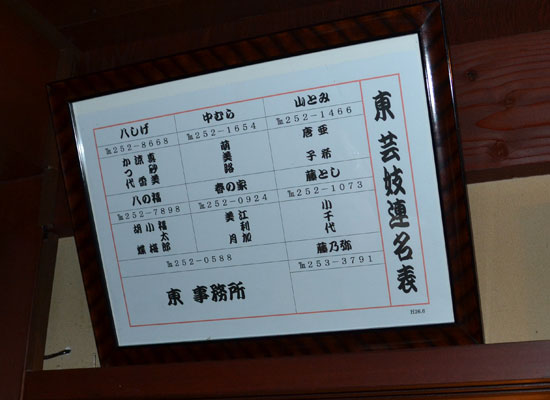 東 芸妓連名表
山とみ
℡252-1466
亜希
唐子
中むら
℡252-1654
萌美
八しげ
℡252-8668
真砂美
かつ代
藤とし
℡252-1073
小千代
春の家
℡252-0924
江利加
美月
八の福
℡252-7898
福太郎
藤乃弥
℡253-3791
℡252-0588
東 事務所